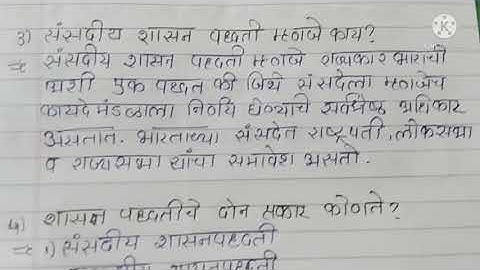 3) संसदीय शासन पद्धती म्हणजे काय?
⇒ संसदीय शासन पद्धती म्हणजे राज्यकारभाराची
अशी एक पद्धत की जिथे संसदेला म्हणजेच
कायदेमंडळाला निर्णय घेण्याचे सर्वश्रेष्ठ अधिकार
असतात. भारताच्या संसदेत राष्ट्रपती, लोकसभा
व राज्यसभा यांचा समावेश असतो.
4) शासन पद्धतीचे दोन प्रकार कोणते?
⇒ 1) संसदीय शासनपद्धती
शासनपद्धती